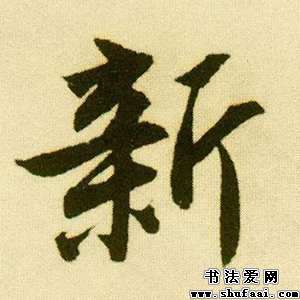 新
书法爱网
www.shufaai.com